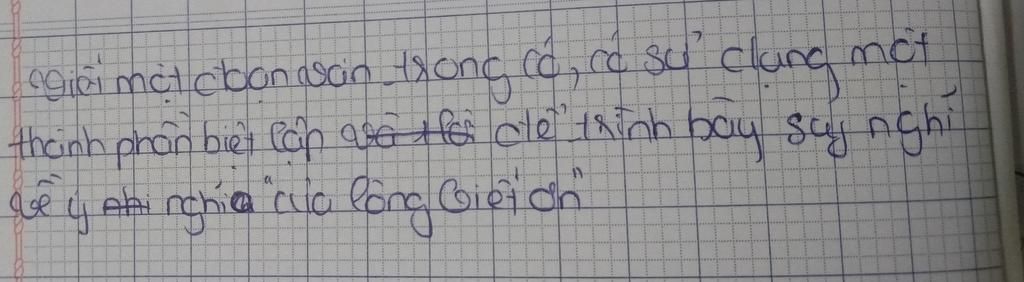 giới một đoạn văn trong đó, có sử dụng một
thành phần biệt lập để trình bày suy nghĩ
về ý nghĩa "của lòng biết ơn"